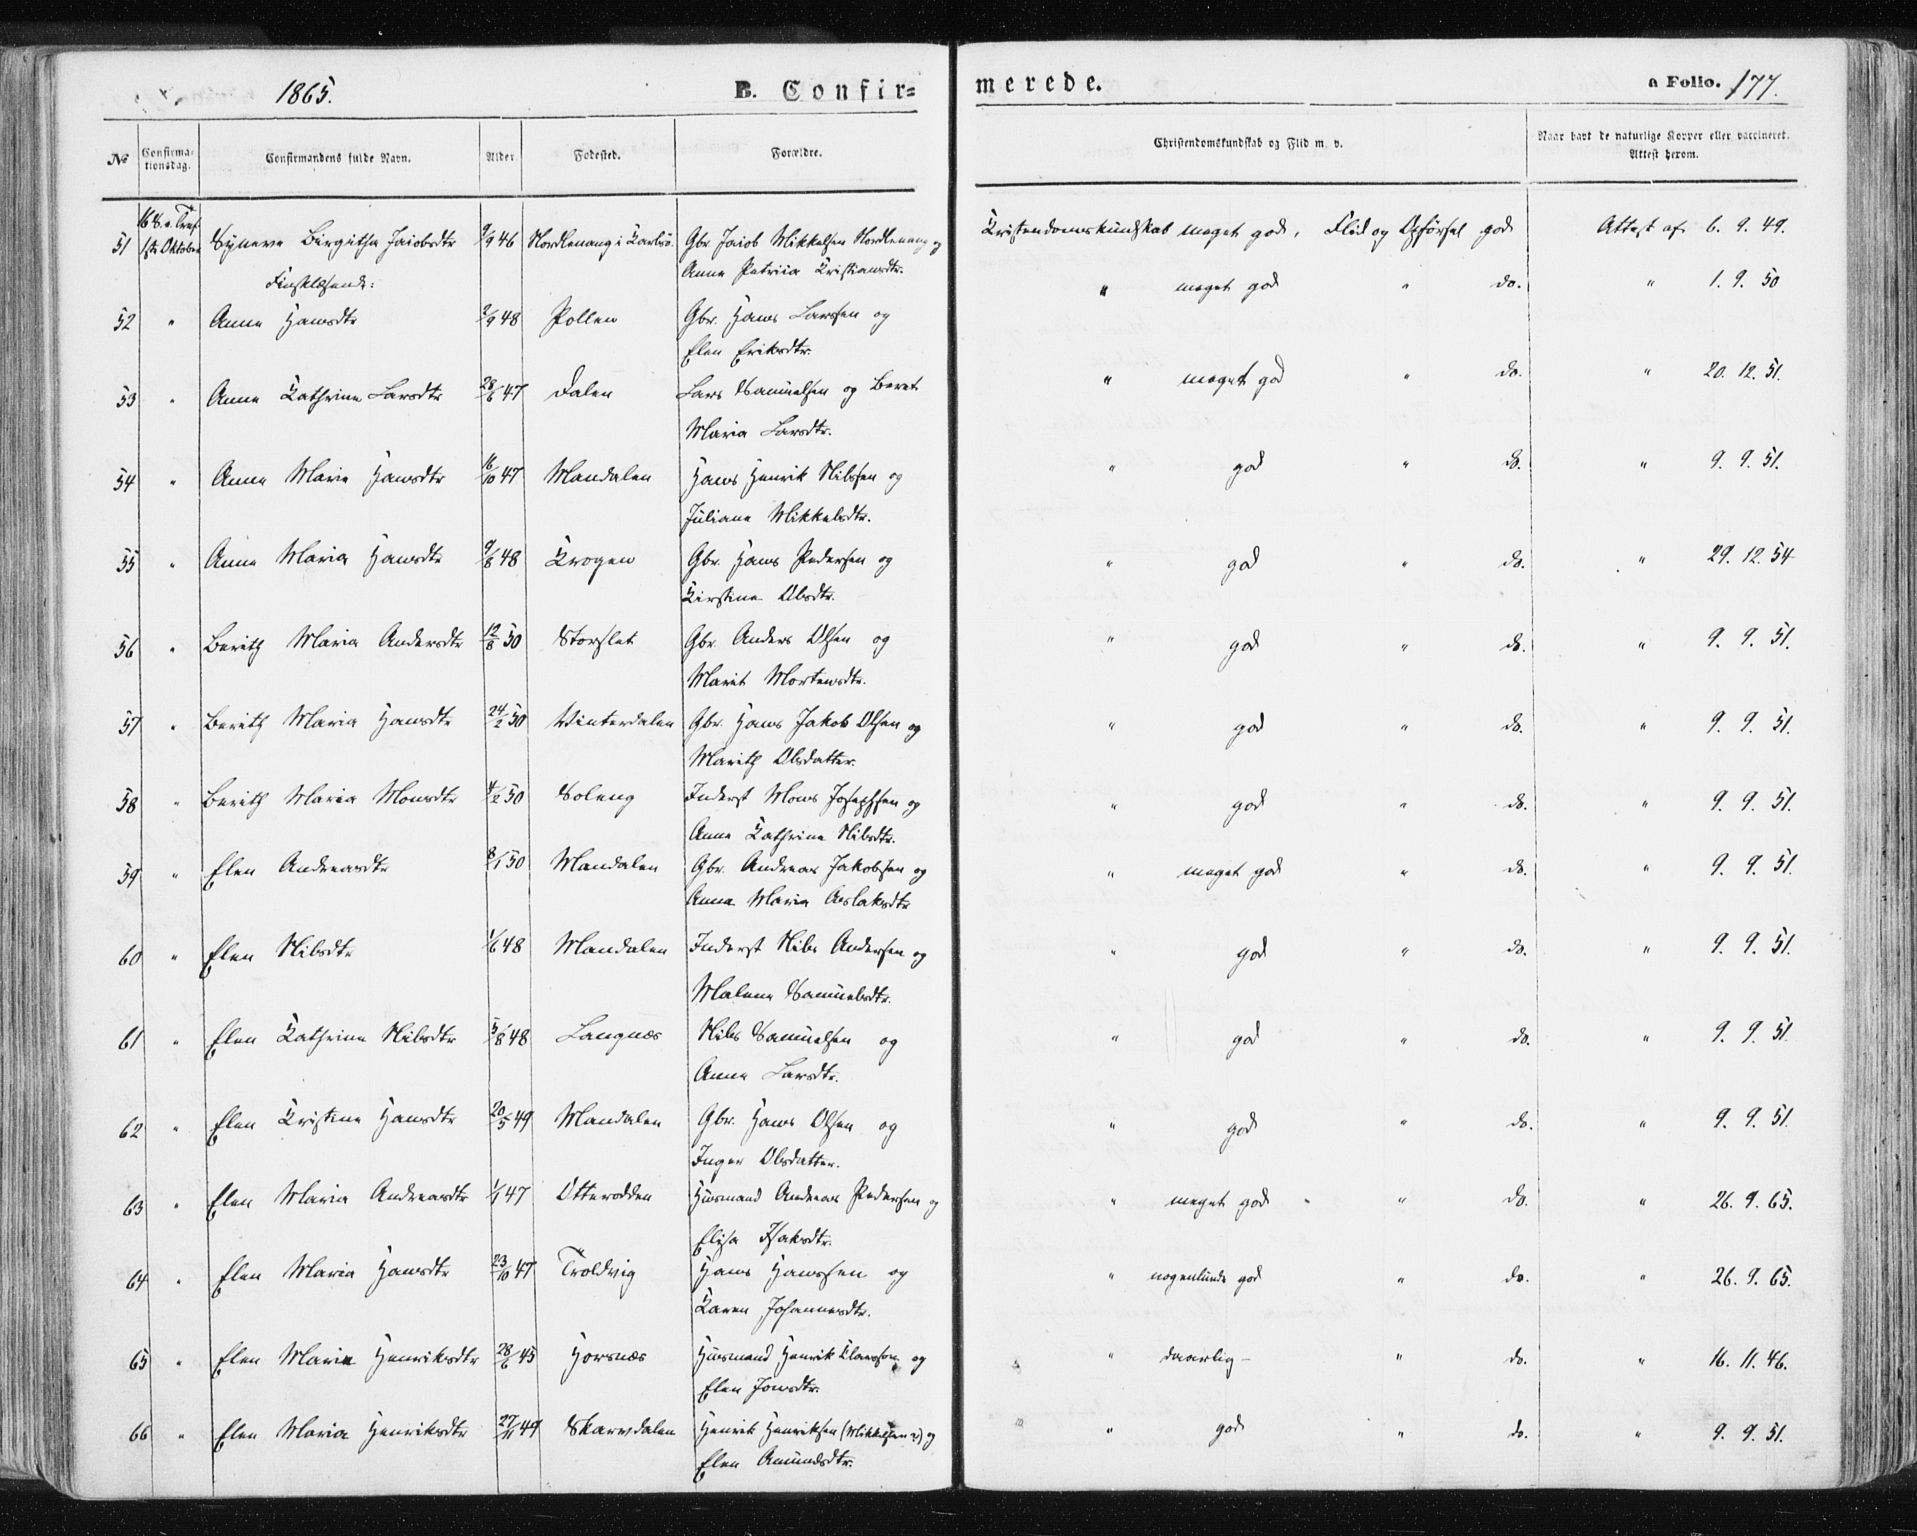 1865.
B. Confir=
merede.
a Folio. 177.
No
Confirma-
tionsdag.
Confirmandens fulde Navn.
Alder.
Fødested.
Forældre.
Christendomskundskab og Flid m. v.
Naar havt de naturlige Kopper eller vaccineret.
Attest herom.
16 S. e. Tref.
1ste Oktober
51 Birgitha Jaiobsdtr 9/9 46 Nordlenang i Karlsø. Gbr. Jaiob Mikkelsen Nordlenang og
Anne Kristiansdtr.
Kristendomskundskab meget god. Flid og Opførsel god Attest af 6. 9. 49.
Finsklæsende:
52 " Anne Hansdtr 2/9 48 Pollen Gbr. Hans Larssen og
Elen Eriksdtr.
" meget god " do. " 1. 9. 50
53 " Anne Kathrine Larsdtr 28/6 47 Dalen Lars Samuelsen og Beret
Maria Larsdtr.
" meget god " do. " 20. 12. 51.
54 " Anne Marie Hansdtr 16/10 47 Mandalen Hans Henrik Nilssen og
Juliane Mikkelsdtr.
" god " do. " 9. 9. 51.
55 " Anne Maria Hansdtr 9/8 48 Krogen Gbr. Hans Pedersen og
Kirstine Olsdtr.
" god " do. " 29. 12. 54
56 " Berith Maria Andersdtr 12/8 50 Storslet Gbr. Anders Olsen og
Marit Mortensdtr.
" god " do. " 9. 9. 51.
57 " Berith Maria Hansdtr 24/2 50 Vinterdalen Gbr. Hans Jakob Olsen og
Marith Olsdatter.
" god " do. " 9. 9. 51.
58 " Berith Maria Monsdtr 4/2 50 Soleng Inderst Mons Josephsen og
Anne Kathrine Nilsdtr.
" god " do. " 9. 9. 51.
59 " Elen Andreasdtr 8/1 50 Mandalen Gbr. Andreas Jakobsen og
Anne Maria Aslaksdtr
" meget god " do. " 9. 9. 51.
60 " Elen Nilsdtr 1/6 48 Mandalen Inderst Nils Andersen og
Malene Samuelsdtr.
" god " do. " 9. 9. 51.
61 " Elen Kathrine Nilsdtr 5/8 48 Langnæs Nils Samuelsen og
Anne Larsdtr.
" god " do. " 9. 9. 51
62 " Elen Kristine Hansdtr 20/5 49 Mandalen Gbr. Hans Olsen og
Inger Olsdatter.
" god " do. " 9. 9. 51
63 " Elen Maria Andreasdtr 1/1 47 Otterodden Husmand Andreas Pedersen og
Elisa Isaksdtr.
" meget god " do. " 26. 9. 65.
64 " Elen Maria Hansdtr 23/10 47 Troldvig Hans Hanssen og
Karen Johannesdtr.
" nogenlunde god " do. " 26. 9. 65.
65 " Elen Marie Henriksdtr 28/6 45 Horsnæs Husmand Henrik Klaussen og
Elen Jonsdtr.
" daarlig - " do. " 16. 11. 46.
66 " Elen Maria Henriksdtr 27/11 49 Skarvdalen Henrik Henriksen (Mikkelsen ?) og
Elen Amundsdtr.
" god " do. " 9. 9. 51.